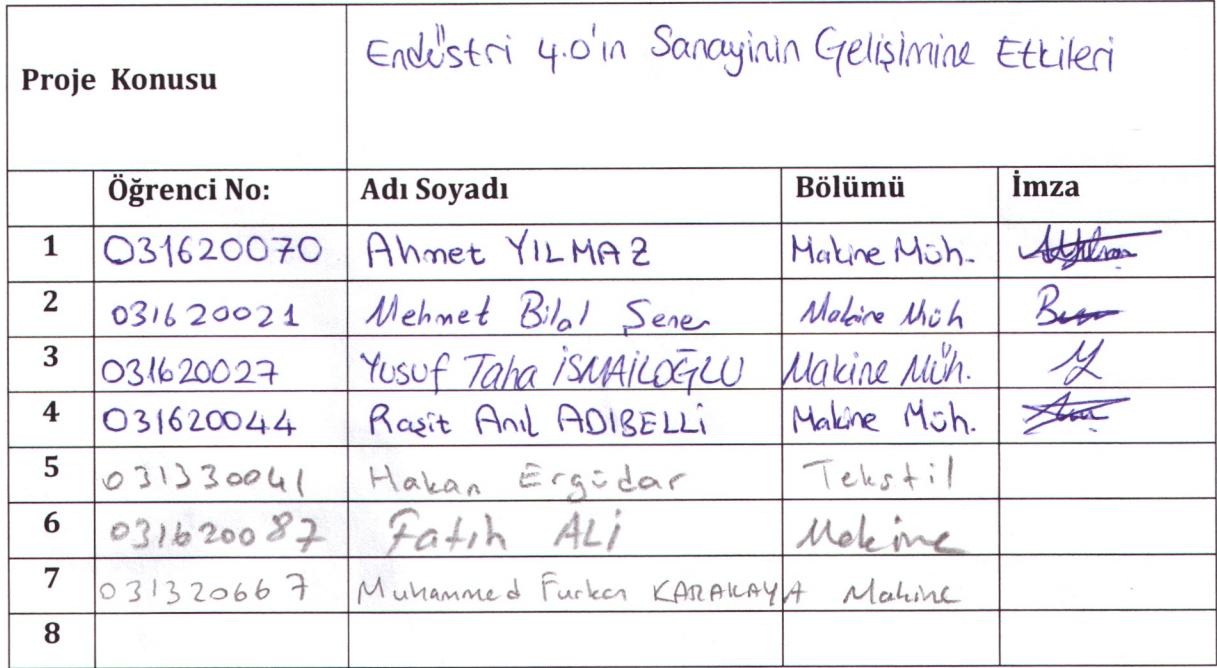 Proje Konusu Endüstri 4.0'ın Sanayinin Gelişimine Etkileri
Öğrenci No: Adı Soyadı Bölümü İmza
1 031620070 Ahmet YILMAZ Makine Müh.
2 031620021 Mehmet Bilal Şener Makine Müh
3 031620027 Yusuf Taha İSMAİLOĞLU Makine Müh.
4 031620044 Raşit Anıl ADIBELLİ Makine Müh.
5 031330041 Hakan Ergüdar Tekstil
6 031620087 Fatih ALİ Makine
7 031320667 Muhammed Furkan KARAKAYA Makine
8